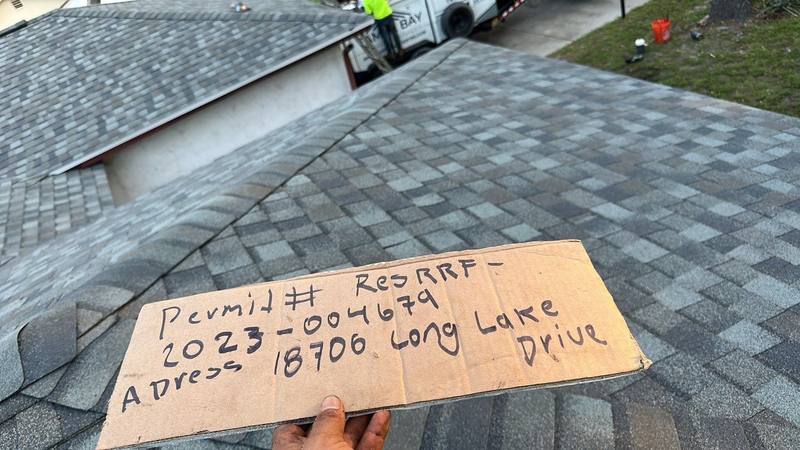 BAY
Permit # ResRRF-
2023-004679
Adress 18706 Long Lake
Drive